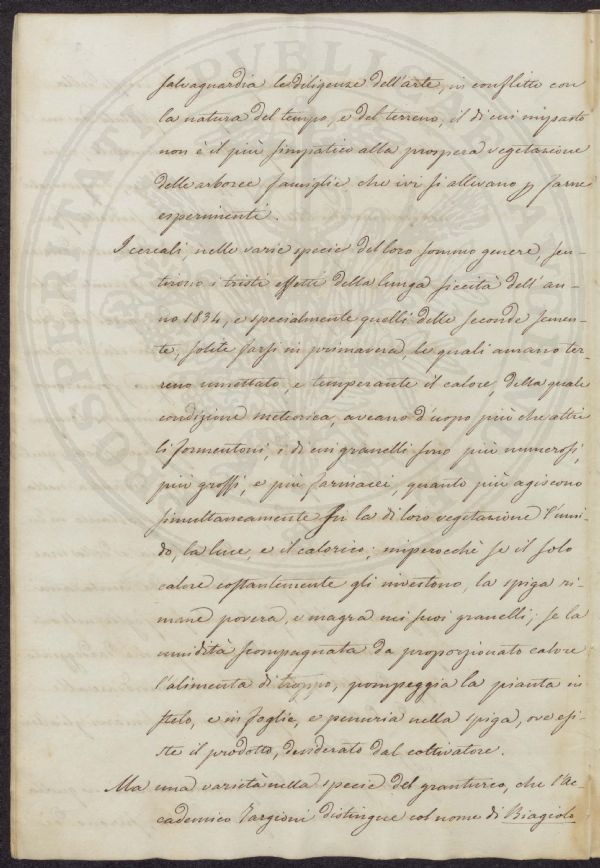 salvaguardia le diligenze dell'arte, in conflitto con
la natura del tempo, e del terreno, il di cui impasto
non è il più simpatico alla prospera vegetazione
delle arboree famiglie che ivi si allevano p farne
esperimenti.
I cereali nelle varie specie del loro sommo genere, sen-
tirono i tristi effetti della lunga siccità dell'an-
no 1834, e specialmente quelli delle seconde semen-
te, solite farsi in primavera, le quali amano ter-
reno umettato, e temperante il calore, della quale
condizione meteorica, aveano d'uopo più che altri
li formentoni, i di cui granelli sono più numerosi,
più grossi, e più farinacei, quanto più agiscono
simultaneamente su la di loro vegetazione l'umi-
do, la luce, e il calorico; imperocchè se il solo
calore costantemente gli investono, la spiga ri-
mane povera, e magra nei suoi granelli; se la
umidità scompagnata da proporzionato calore
l'alimenta di troppo, pompeggia la pianta in
stelo, e in foglie, e penuria nella spiga, ove esi-
ste il prodotto, desiderato dal coltivatore.
Ma una varietà nella specie del granturco, che l'Ac-
cademico Targioni distingue col nome di Biagiolo
PROSPERITATI PVBLICAE